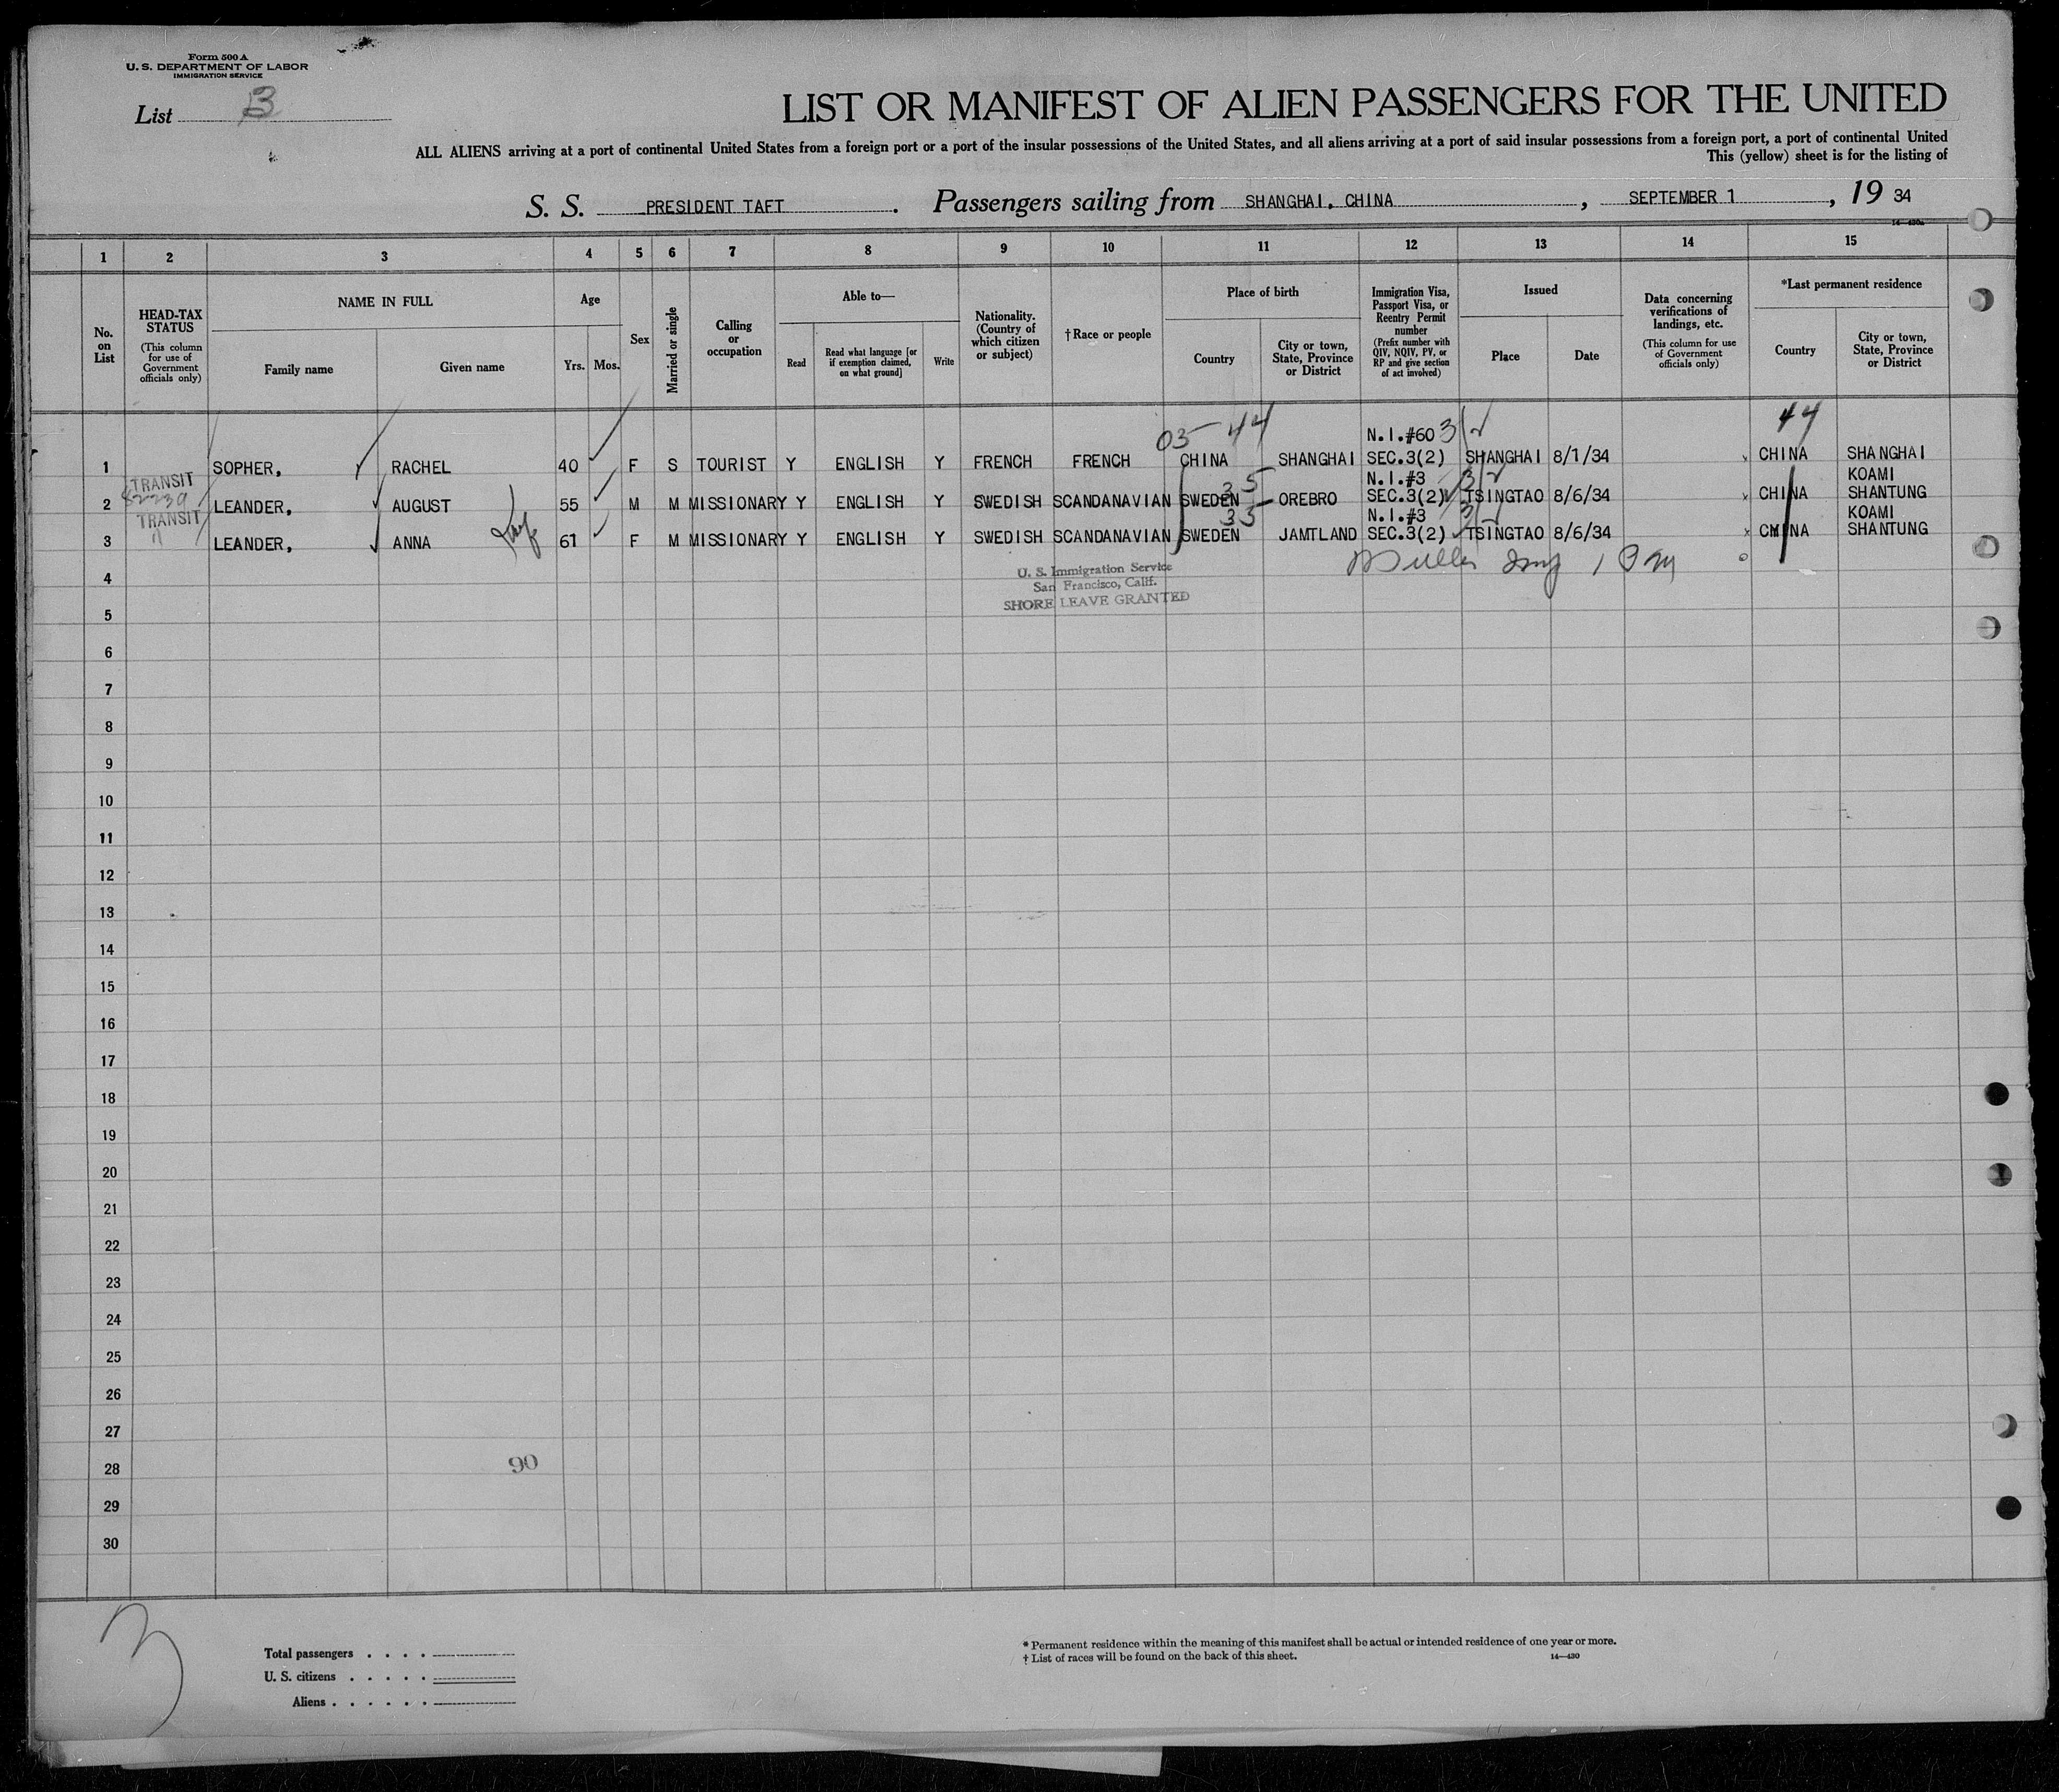 Form 500 A
U. S. DEPARTMENT OF LABOR
IMMIGRATION SERVICE
List B
LIST OR MANIFEST OF ALIEN PASSENGERS FOR THE UNITED
ALL ALIENS arriving at a port of continental United States from a foreign port or a port of the insular possessions of the United States, and all aliens arriving at a port of said insular possessions from a foreign port, a port of continental United
This (yellow) sheet is for the listing of
S. S. PRESIDENT TAFT . Passengers sailing from SHANGHAI, CHINA , SEPTEMBER 1 , 19 34
14—430a
1 2 3 4 5 6 7 8 9 10 11 12 13 14 15
No. on List
HEAD-TAX STATUS (This column for use of Government officials only)
NAME IN FULL
Family name Given name
Age
Yrs. Mos.
Sex
Married or single
Calling or occupation
Able to—
Read Read what language [or if exemption claimed, on what ground] Write
Nationality. (Country of which citizen or subject)
† Race or people
Place of birth
Country City or town, State, Province or District
Immigration Visa, Passport Visa, or Reentry Permit number (Prefix number with QIV, NQIV, PV, or RP and give section of act involved)
Issued
Place Date
Data concerning verifications of landings, etc. (This column for use of Government officials only)
*Last permanent residence
Country City or town, State, Province or District
05 44 44
N.I.#60 3/2
1 SOPHER, RACHEL 40 F S TOURIST Y ENGLISH Y FRENCH FRENCH CHINA SHANGHAI SEC.3(2) SHANGHAI 8/1/34 CHINA SHANGHAI
TRANSIT 35 N.I.#3 3/2 KOAMI
2 LEANDER, AUGUST 55 M M MISSIONARY Y ENGLISH Y SWEDISH SCANDANAVIAN SWEDEN OREBRO SEC.3(2) TSINGTAO 8/6/34 CHINA SHANTUNG
TRANSIT 35 N.I.#3 3/2 KOAMI
3 LEANDER, ANNA 61 F M MISSIONARY Y ENGLISH Y SWEDISH SCANDANAVIAN SWEDEN JAMTLAND SEC.3(2) TSINGTAO 8/6/34 CHINA SHANTUNG
U. S. Immigration Service
San Francisco, Calif.
SHORE LEAVE GRANTED
4
5
6
7
8
9
10
11
12
13
14
15
16
17
18
19
20
21
22
23
24
25
26
27
28 90
29
30
3
Total passengers . . . .
U. S. citizens . . . . .
Aliens . . . . . .
* Permanent residence within the meaning of this manifest shall be actual or intended residence of one year or more.
† List of races will be found on the back of this sheet.
14—430